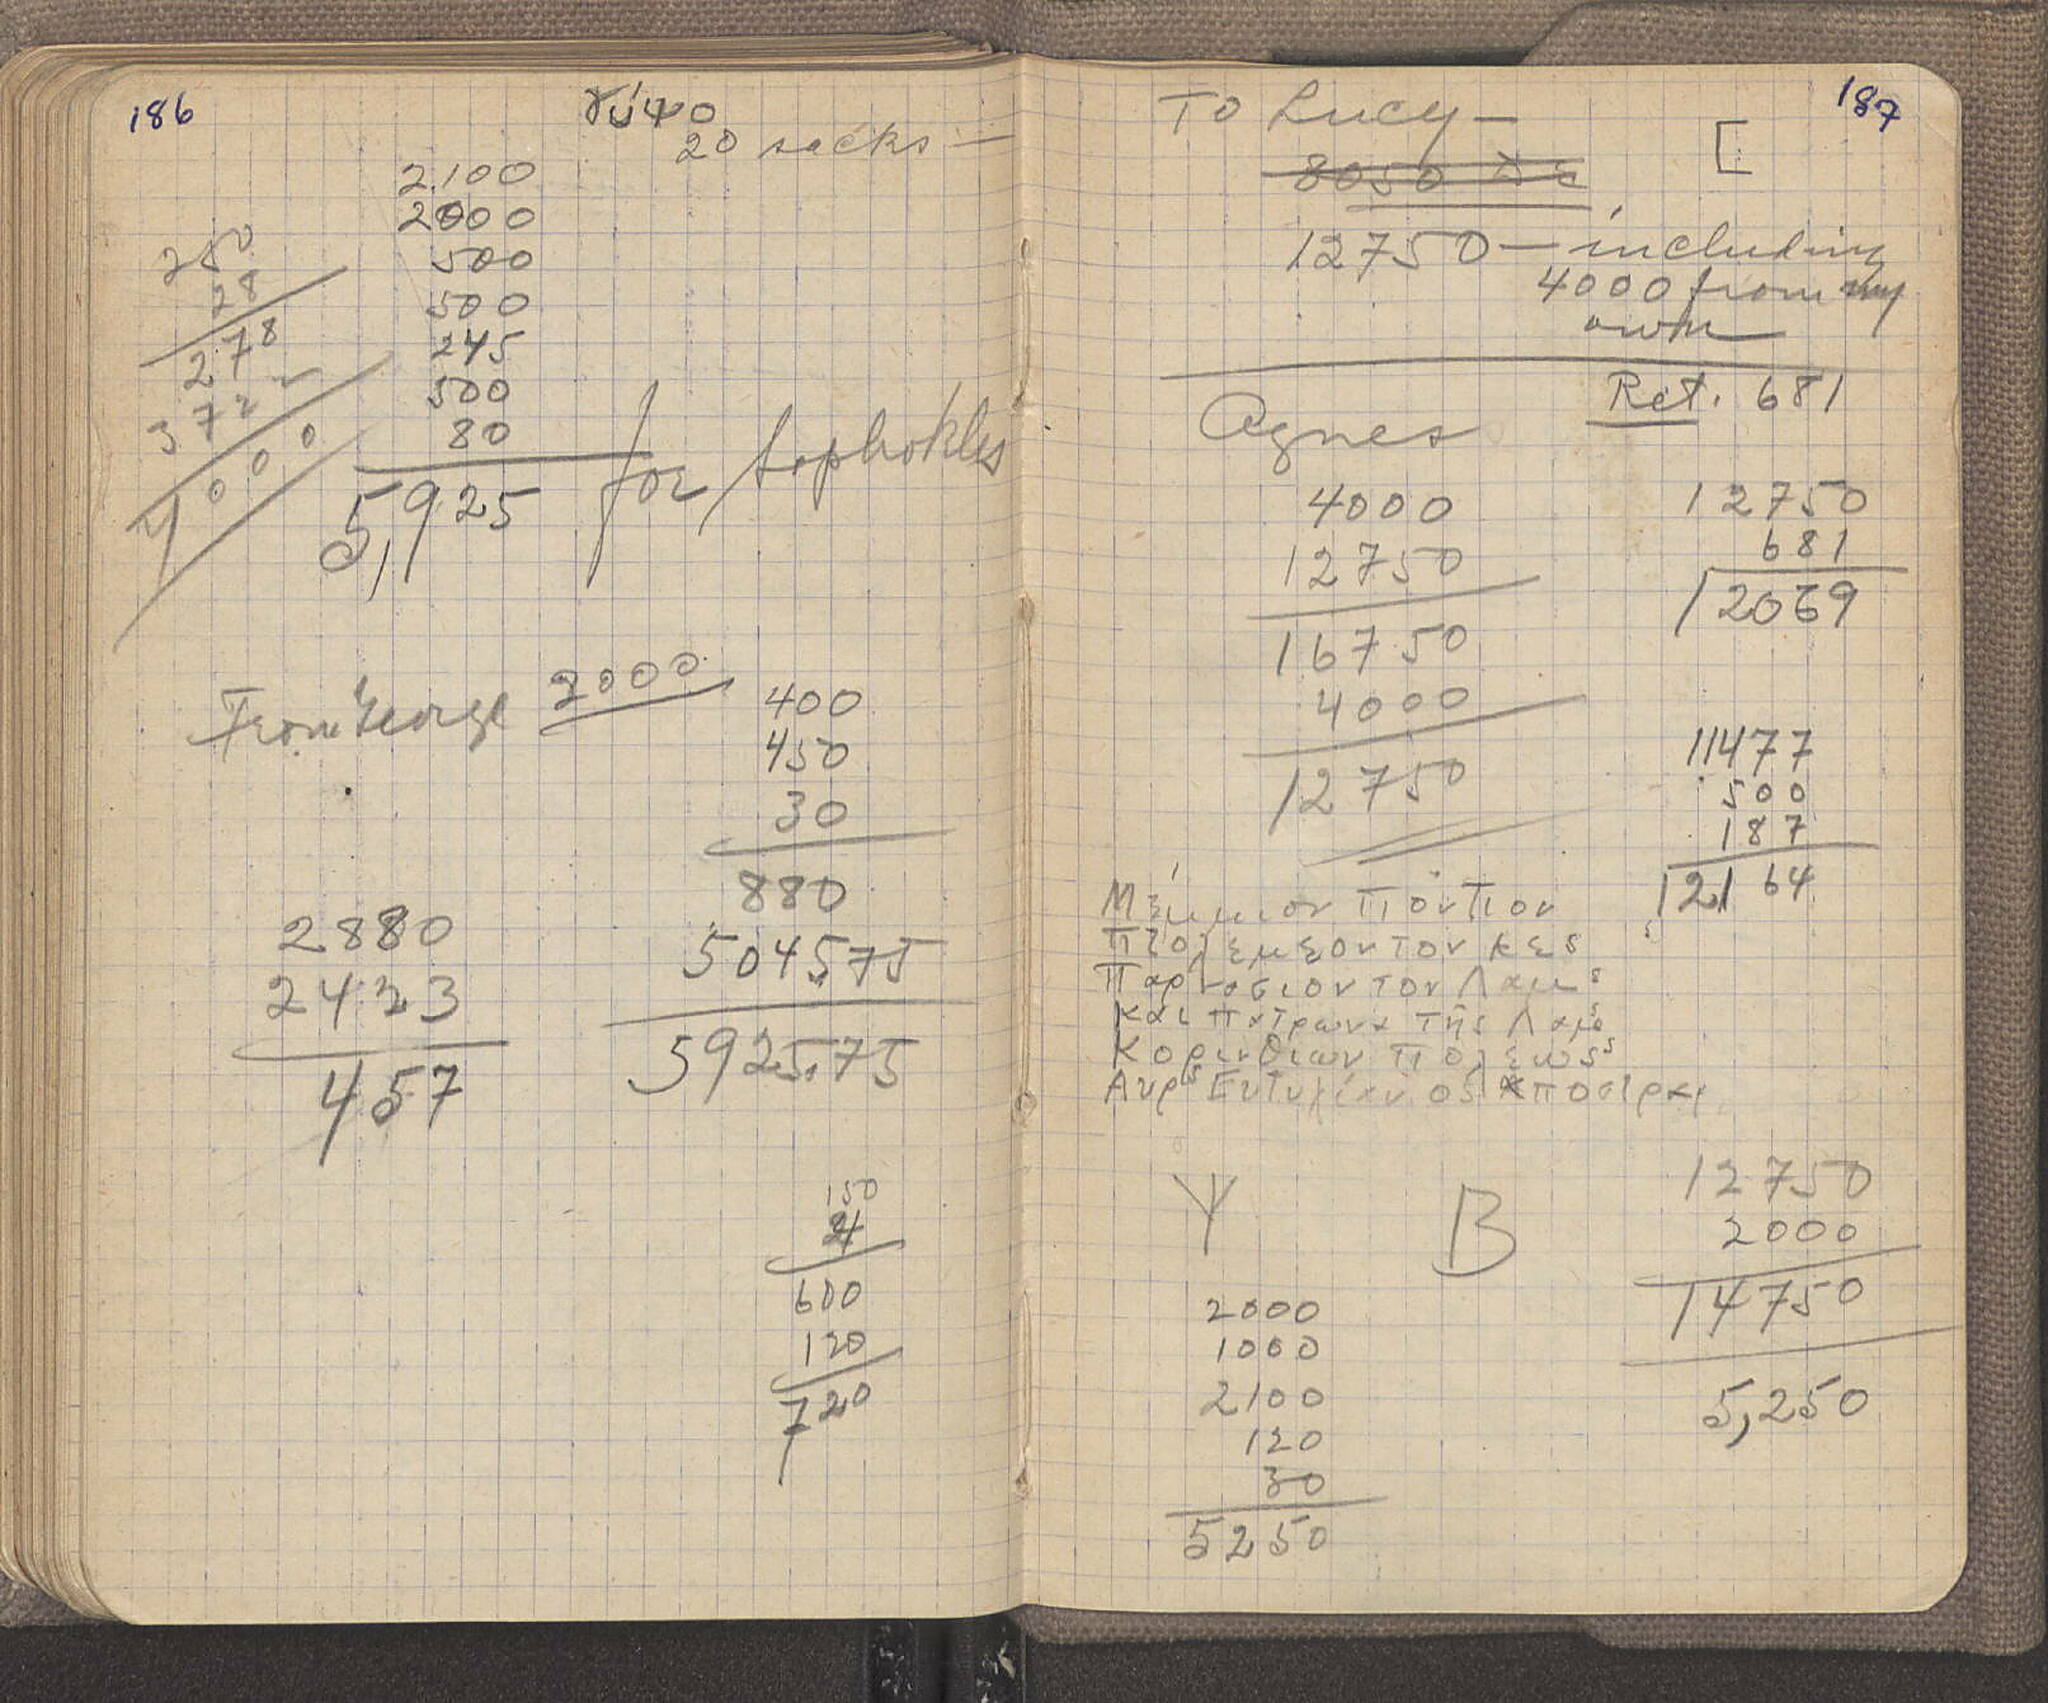 186
γύψο
20 sacks —
2100
2000
500
500
245
500
80
5,925 for Sophokles
250
28
278
372
1000
From George 2000
400
450
30
880
504575
5925.75
2880
2423
457
150
4
600
120
720
187
To Lucy —
[
8050 Δρ
12750 — including
4000 from my
own
Ret. 681
Agnes
4000
12750
16750
4000
12750
12750
681
12069
11477
500
187
12164
Μέμμιον Πόντιον
Πτολεμεον τον κες
Παρνασιον τον Λαμς
και πατρωνα της Λαμς
Κορινθιων πολεως
Ψ
B
2000
1000
2100
120
30
5250
12750
2000
14750
5,250